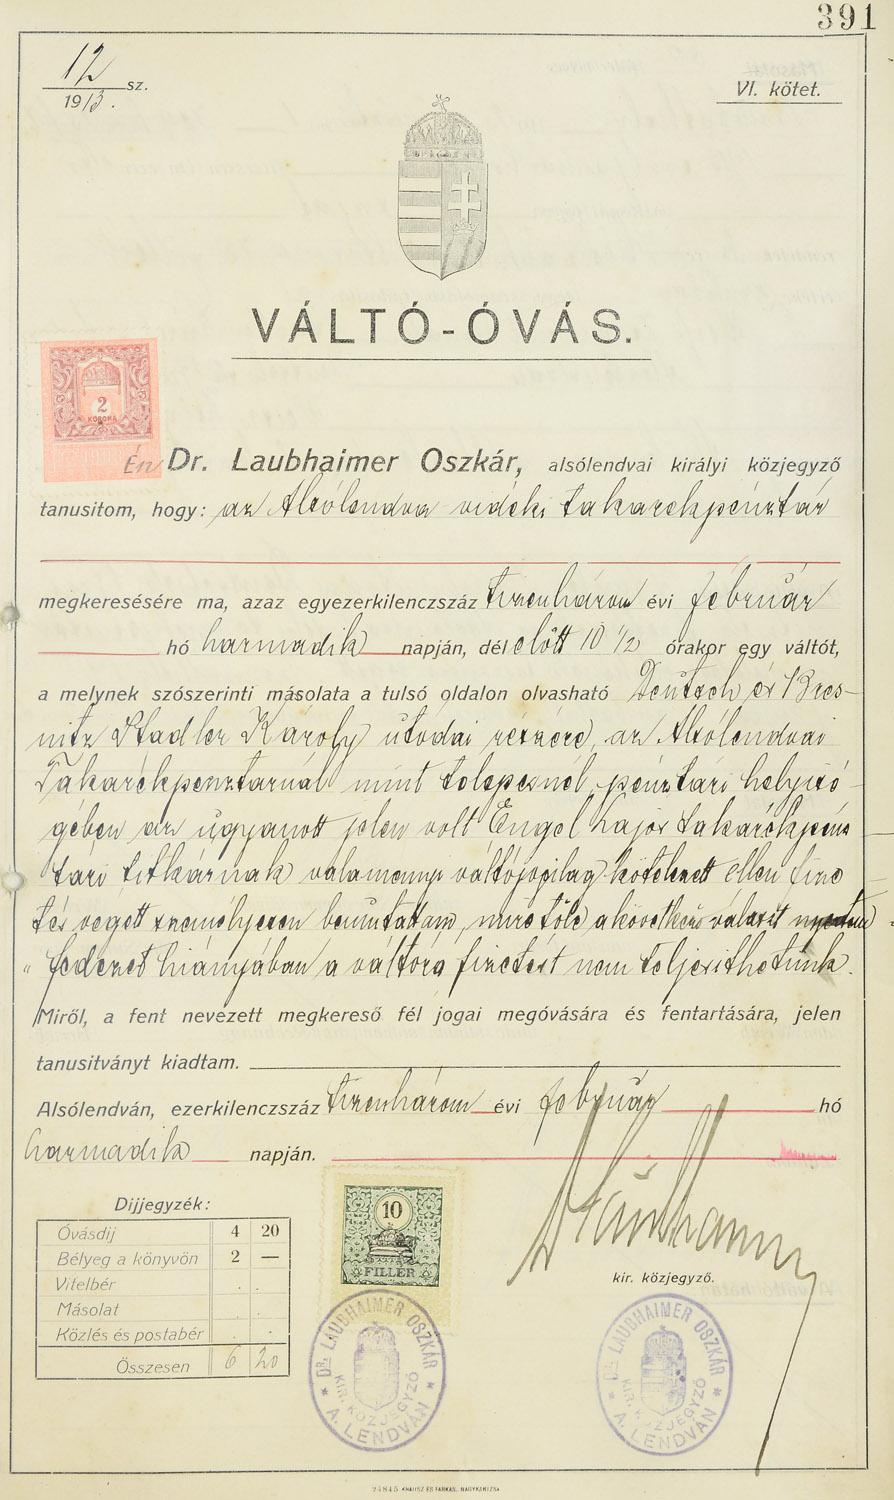 391
12 sz.
1913.
VI. kötet.
VÁLTÓ-ÓVÁS.
2
KORONA
Én Dr. Laubhaimer Oszkár, alsólendvai királyi közjegyző
tanusitom, hogy: az Alsólendva vidéki takarékpénztár
megkeresésére ma, azaz egyezerkilenczszáz tizenhárom évi február
hó harmadik napján, dél előtt 10 1/2 órakor egy váltót,
a melynek szószerinti másolata a tulsó oldalon olvasható Deutsch és Bres-
nitz Stadler Károly utódai részére, az Alsólendvai
Takarékpenztárnál mint telepesnél, pénztári helyisé-
gében az ugyanott jelen volt Engel Lajos takarékpénz
tári titkárnak valamennyi váltójogilag kötelezett ellen fize
tés végett személyesen bemutattam, mire tőle a következő választ nyertem
„fedezet hiányában a váltóra fizetést nem teljesithetünk.
Miről, a fent nevezett megkereső fél jogai megóvására és fentartására, jelen
tanusitványt kiadtam.
Alsólendván, ezerkilenczszáz tizenhárom évi február hó
harmadik napján.
Dijjegyzék:
Óvásdij 4 20
Bélyeg a könyvön 2 —
Vitelbér . .
Másolat . .
Közlés és postabér . .
Összesen 6 20
10
FILLÉR
kir. közjegyző.
DR. LAUBHAIMER OSZKÁR
KIR. KÖZJEGYZŐ
* A. LENDVÁN *
DR. LAUBHAIMER OSZKÁR
KIR. KÖZJEGYZŐ
* A. LENDVÁN *
24845 KRAUSZ ÉS FARKAS, NAGYKANIZSA